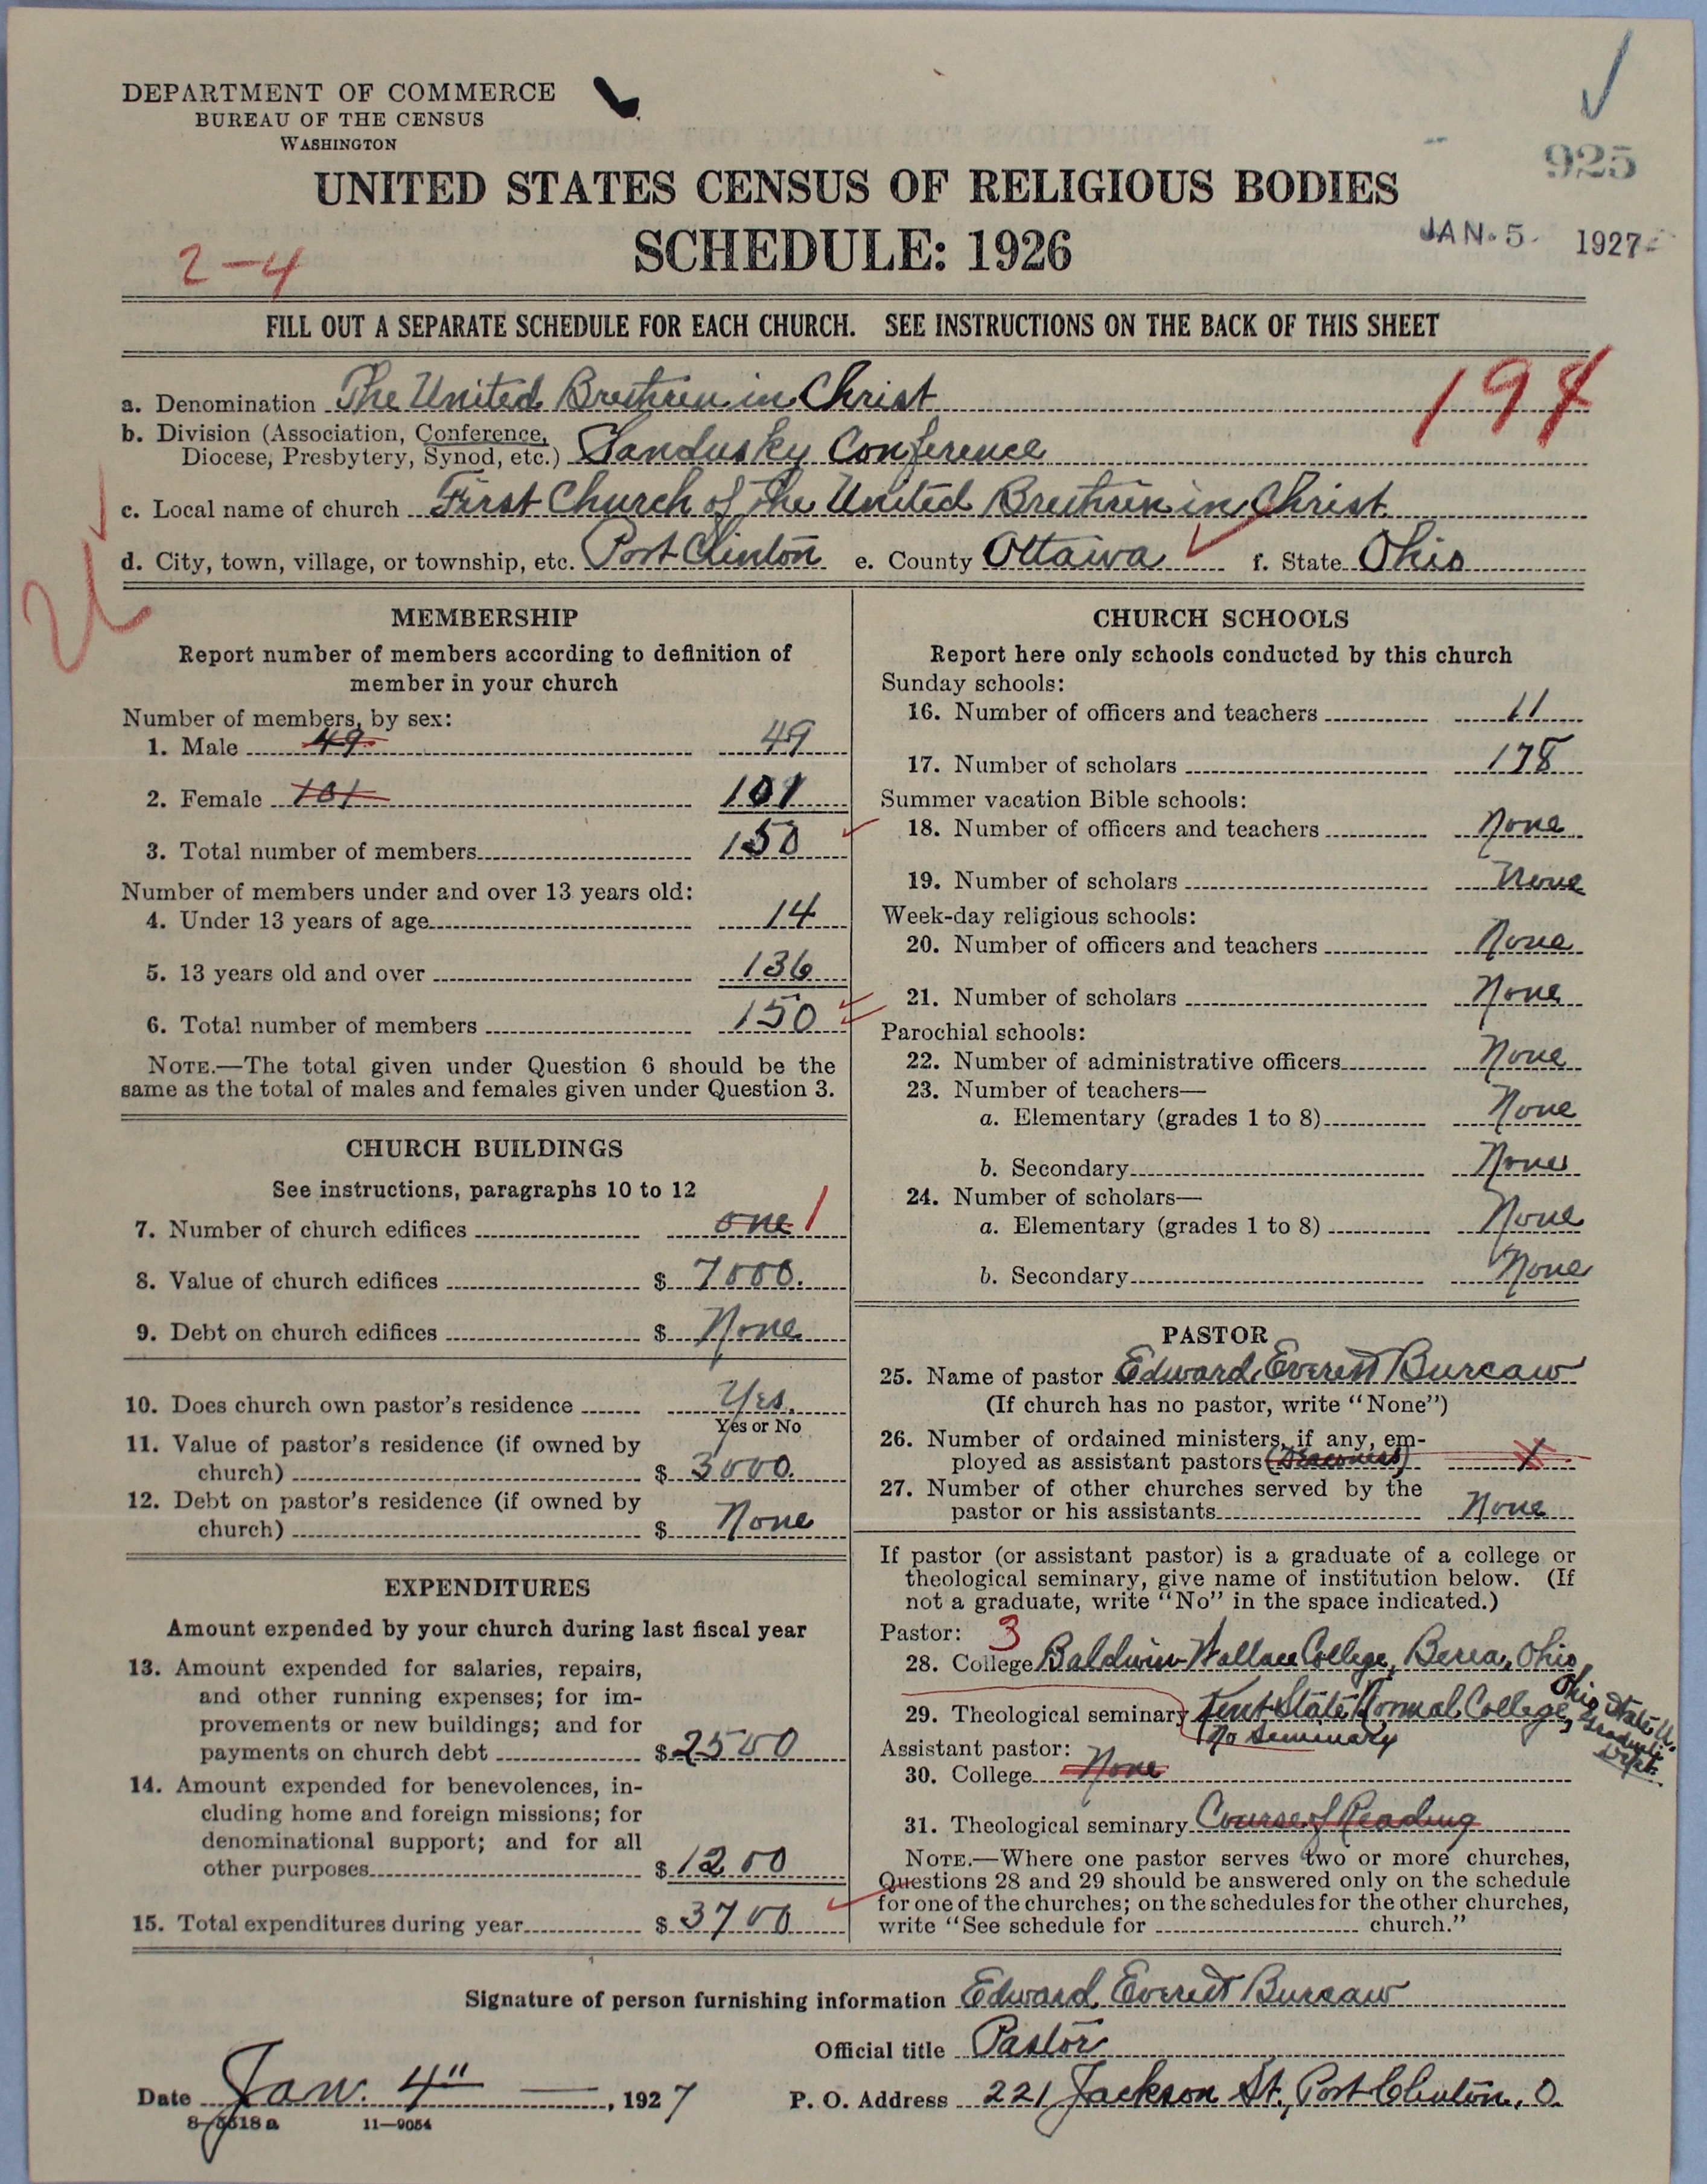 DEPARTMENT OF COMMERCE
BUREAU OF THE CENSUS
WASHINGTON
925
UNITED STATES CENSUS OF RELIGIOUS BODIES
SCHEDULE: 1926
JAN. 5. 1927
2-4
FILL OUT A SEPARATE SCHEDULE FOR EACH CHURCH. SEE INSTRUCTIONS ON THE BACK OF THIS SHEET
a. Denomination The United Brethren in Christ
b. Division (Association, Conference,
Diocese, Presbytery, Synod, etc.) Sandusky Conference
c. Local name of church First Church of the United Brethren in Christ
d. City, town, village, or township, etc. Port Clinton e. County Ottawa f. State Ohio
MEMBERSHIP
Report number of members according to definition of
member in your church
Number of members, by sex:
1. Male 49 49
2. Female 101 101
3. Total number of members 150
Number of members under and over 13 years old:
4. Under 13 years of age 14
5. 13 years old and over 136
6. Total number of members 150
NOTE.—The total given under Question 6 should be the
same as the total of males and females given under Question 3.
CHURCH BUILDINGS
See instructions, paragraphs 10 to 12
7. Number of church edifices one 1
8. Value of church edifices $ 7000.
9. Debt on church edifices $ None
10. Does church own pastor's residence Yes.
Yes or No
11. Value of pastor's residence (if owned by
church) $ 3000.
12. Debt on pastor's residence (if owned by
church) $ None
EXPENDITURES
Amount expended by your church during last fiscal year
13. Amount expended for salaries, repairs,
and other running expenses; for im-
provements or new buildings; and for
payments on church debt $ 2500
14. Amount expended for benevolences, in-
cluding home and foreign missions; for
denominational support; and for all
other purposes $ 1200
15. Total expenditures during year $ 3700
CHURCH SCHOOLS
Report here only schools conducted by this church
Sunday schools:
16. Number of officers and teachers 11
17. Number of scholars 178
Summer vacation Bible schools:
18. Number of officers and teachers None
19. Number of scholars None
Week-day religious schools:
20. Number of officers and teachers None
21. Number of scholars None
Parochial schools:
22. Number of administrative officers None
23. Number of teachers—
a. Elementary (grades 1 to 8) None
b. Secondary None
24. Number of scholars—
a. Elementary (grades 1 to 8) None
b. Secondary None
PASTOR
25. Name of pastor Edward Everett Burcaw
(If church has no pastor, write "None")
26. Number of ordained ministers, if any, em-
ployed as assistant pastors (Deaconess) 1
27. Number of other churches served by the
pastor or his assistants None
If pastor (or assistant pastor) is a graduate of a college or
theological seminary, give name of institution below. (If
not a graduate, write "No" in the space indicated.)
Pastor: 3
28. College Baldwin-Wallace College, Berea, Ohio
29. Theological seminary Kent State Normal College, Ohio State U. Graduate Dept.
No Seminary
Assistant pastor:
30. College None
31. Theological seminary Course of Reading
NOTE.—Where one pastor serves two or more churches,
Questions 28 and 29 should be answered only on the schedule
for one of the churches; on the schedules for the other churches,
write "See schedule for church."
Signature of person furnishing information Edward Everett Burcaw
Official title Pastor
Date Jan. 4", 1927 P. O. Address 221 Jackson St., Port Clinton, O.
8-5518 a 11-9054